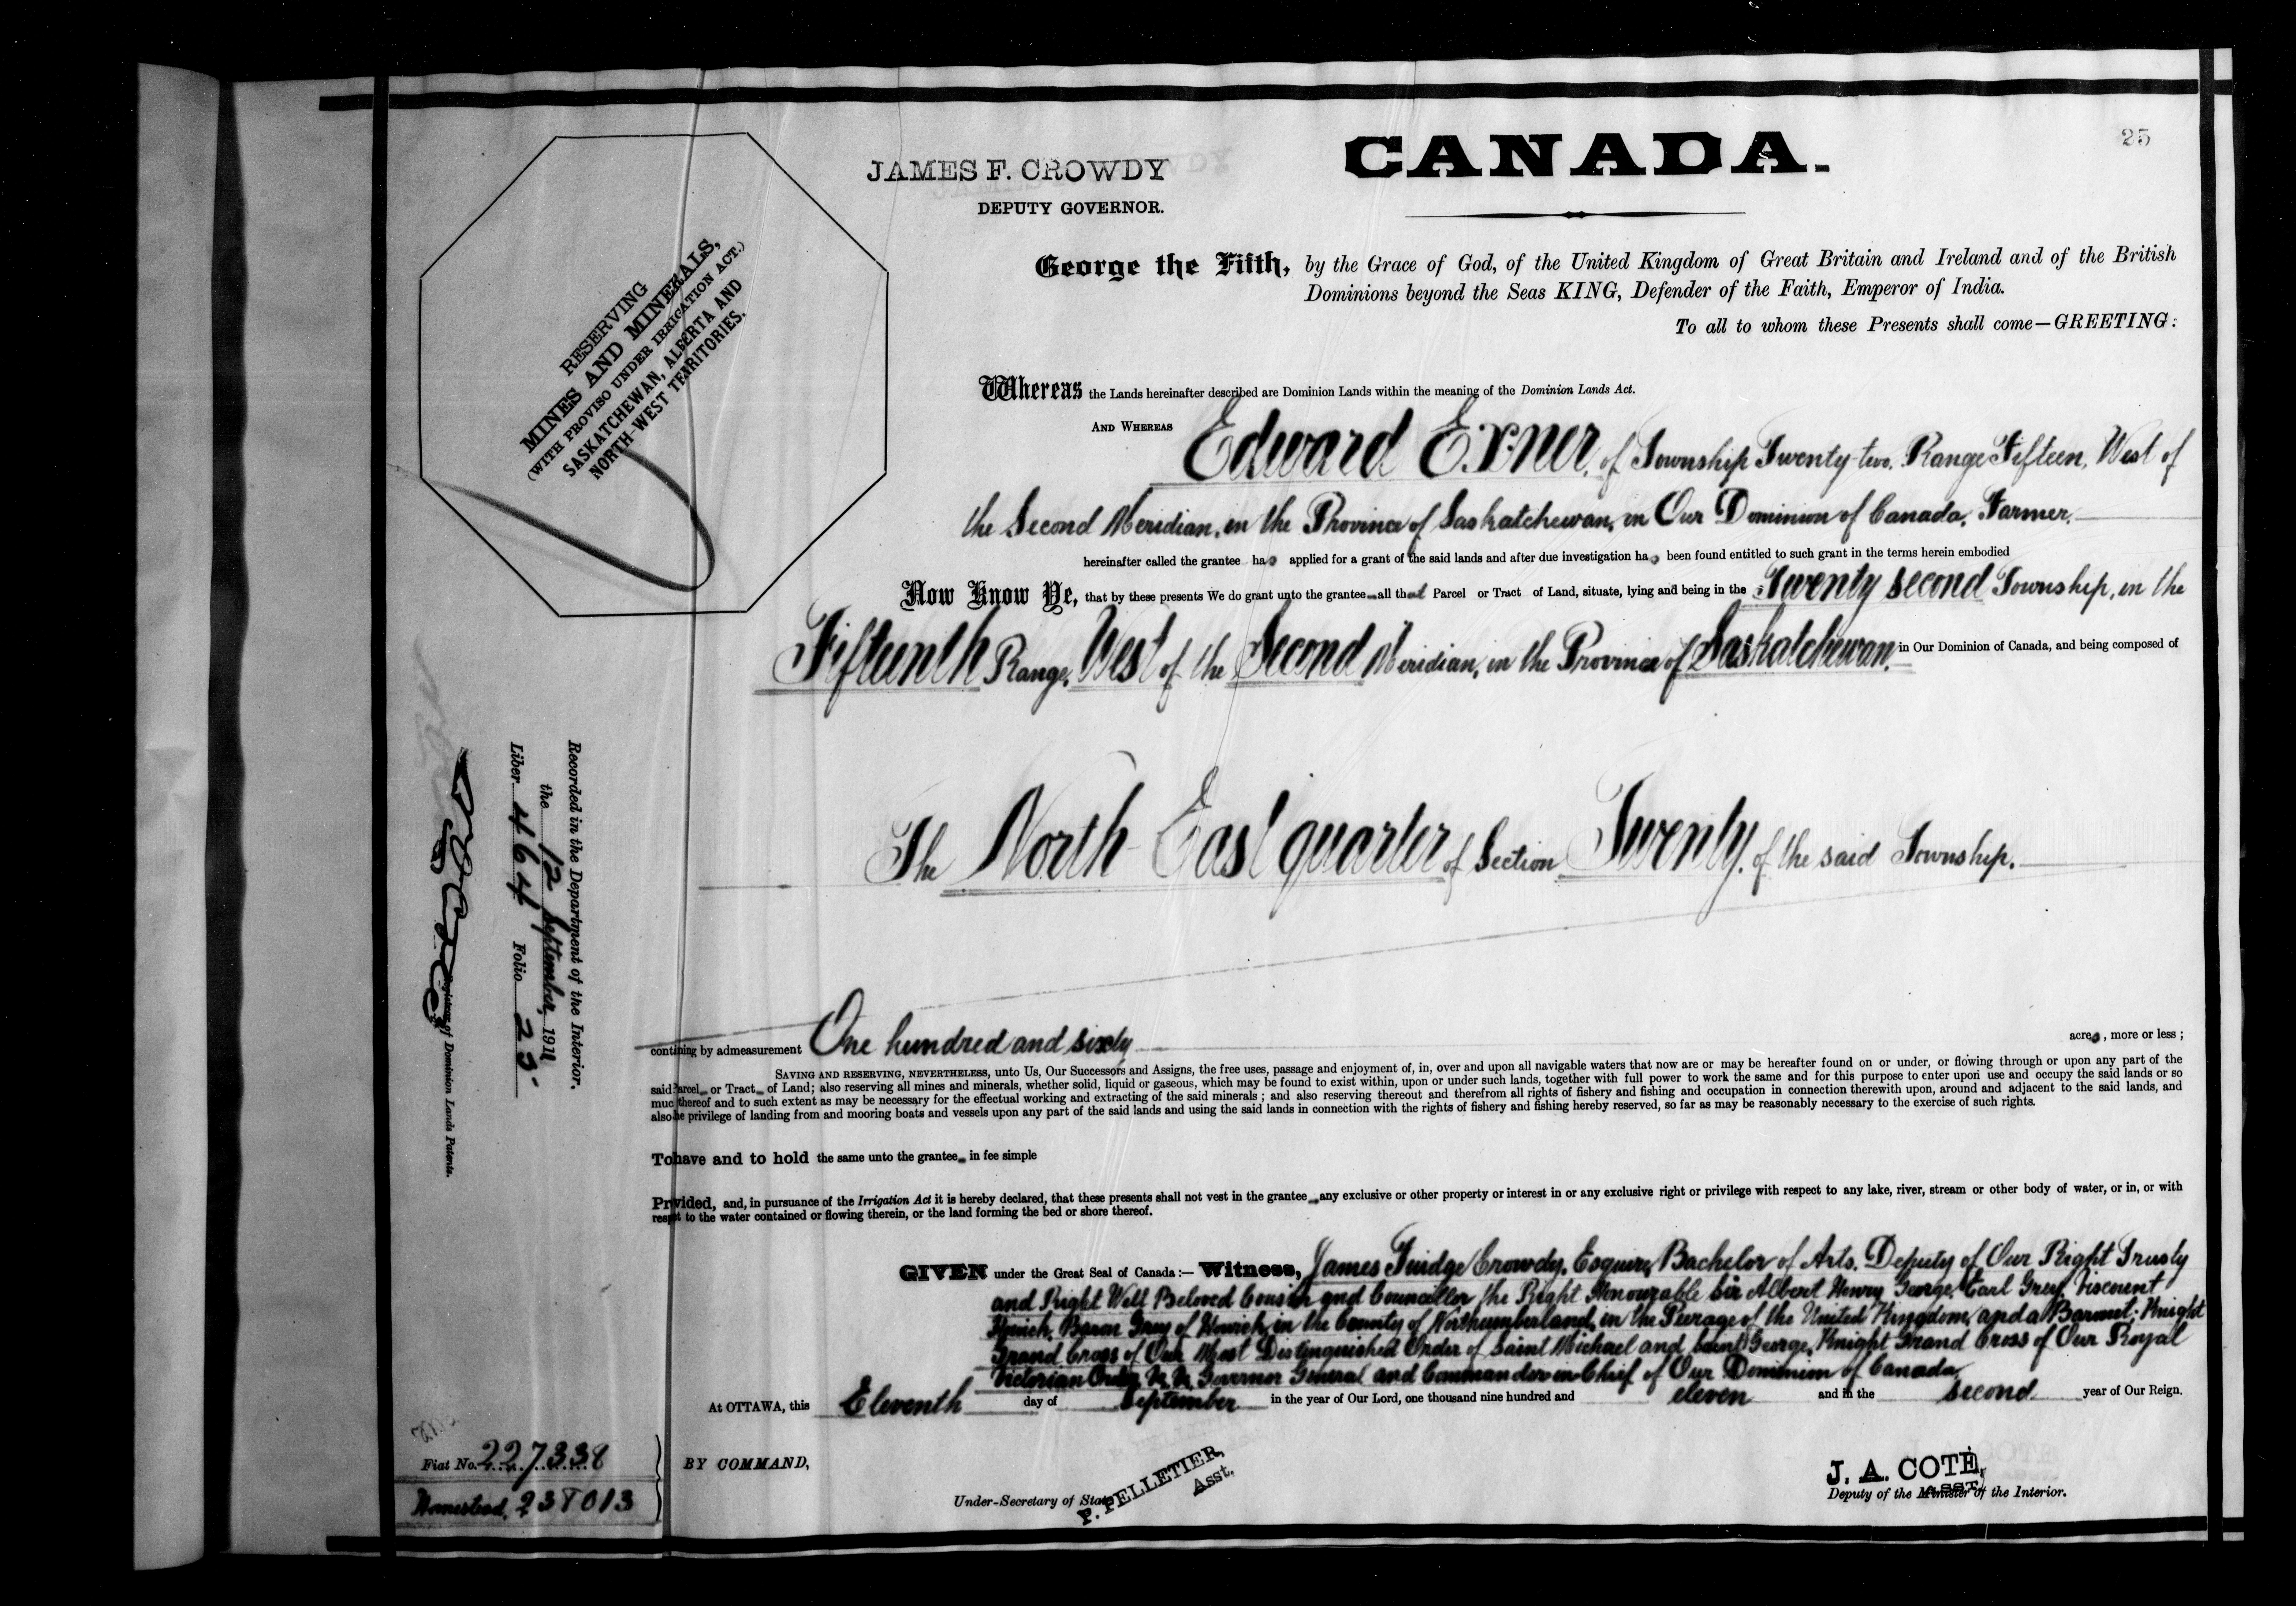 25
CANADA.
JAMES F. CROWDY
DEPUTY GOVERNOR.
RESERVING
MINES AND MINERALS,
(WITH PROVISO UNDER IRRIGATION ACT.)
SASKATCHEWAN, ALBERTA AND
NORTH-WEST TERRITORIES.
George the Fifth, by the Grace of God, of the United Kingdom of Great Britain and Ireland and of the British
Dominions beyond the Seas KING, Defender of the Faith, Emperor of India.
To all to whom these Presents shall come—GREETING:
Whereas the Lands hereinafter described are Dominion Lands within the meaning of the Dominion Lands Act.
AND WHEREAS Edward Exner, of Township Twenty-two, Range Fifteen, West of
the Second Meridian, in the Province of Saskatchewan, in Our Dominion of Canada, Farmer.
hereinafter called the grantee has applied for a grant of the said lands and after due investigation has been found entitled to such grant in the terms herein embodied
Now Know Ye, that by these presents We do grant unto the grantee all that Parcel or Tract of Land, situate, lying and being in the Twenty second Township, in the
Fifteenth Range, West of the Second Meridian, in the Province of Saskatchewan, in Our Dominion of Canada, and being composed of
The North-East quarter of Section Twenty, of the said Township.
contining by admeasurement One hundred and sixty acres, more or less;
SAVING AND RESERVING, NEVERTHELESS, unto Us, Our Successors and Assigns, the free uses, passage and enjoyment of, in, over and upon all navigable waters that now are or may be hereafter found on or under, or flowing through or upon any part of the
said Parcel or Tract of Land; also reserving all mines and minerals, whether solid, liquid or gaseous, which may be found to exist within, upon or under such lands, together with full power to work the same and for this purpose to enter upon use and occupy the said lands or so
muc thereof and to such extent as may be necessary for the effectual working and extracting of the said minerals; and also reserving thereout and therefrom all rights of fishery and fishing and occupation in connection therewith upon, around and adjacent to the said lands, and
also he privilege of landing from and mooring boats and vessels upon any part of the said lands and using the said lands in connection with the rights of fishery and fishing hereby reserved, so far as may be reasonably necessary to the exercise of such rights.
To have and to hold the same unto the grantee in fee simple
Prvided, and, in pursuance of the Irrigation Act it is hereby declared, that these presents shall not vest in the grantee any exclusive or other property or interest in or any exclusive right or privilege with respect to any lake, river, stream or other body of water, or in, or with
respt to the water contained or flowing therein, or the land forming the bed or shore thereof.
GIVEN under the Great Seal of Canada:— Witness, James Fuidge Crowdy, Esquire, Bachelor of Arts, Deputy of Our Right Trusty
and Right Well Beloved Cousin and Councillor the Right Honourable Sir Albert Henry George, Earl Grey, Viscount
Howick, Baron Grey of Howick, in the County of Northumberland, in the Peerage of the United Kingdom, and a Baronet; Knight
Grand Cross of Our Most Distinguished Order of Saint Michael and Saint George, Knight Grand Cross of Our Royal
Victorian Order, &c., &c., Governor General and Commander in Chief of Our Dominion of Canada.
At OTTAWA, this Eleventh day of September in the year of Our Lord, one thousand nine hundred and eleven and in the second year of Our Reign.
BY COMMAND,
P. PELLETIER,
Asst.
Under-Secretary of State
J. A. COTÉ,
ASST.
Deputy of the Minister of the Interior.
Recorded in the Department of the Interior.
the 12 September, 1911
Liber 464 Folio 25
Registrar of Dominion Lands Patents.
Fiat No. 227338
Homestead, 238013